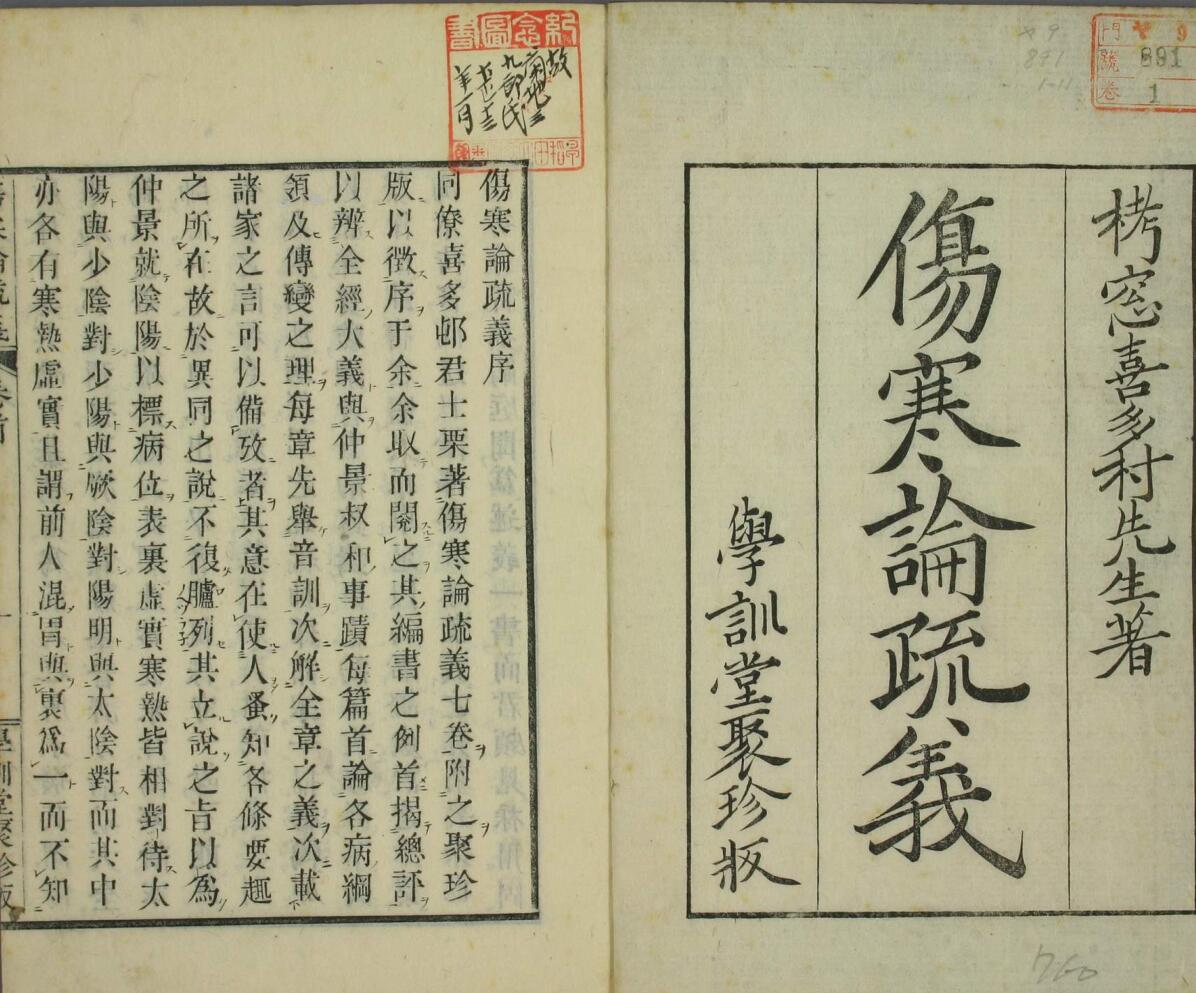 栲窓喜多村先生著
傷寒論疏義
學訓堂聚珍版
891
1
傷寒論疏義序
同僚喜多邨君士栗著傷寒論疏義七卷附之聚珍
版以徵序于余余取而閱之其編書之例首揭總評
以辨全經大義與仲景叔和事蹟每篇首論各病綱
領及傳變之理每章先舉音訓次解全章之義次載
諸家之言可以備攷者其意在使人蚤知各條要趣
之所在故於異同之說不復臚列其立說之旨以爲
仲景就陰陽以標病位表裏虛實寒熱皆相對待太
陽與少陰對少陽與厥陰對陽明與太陰對而其中
亦各有寒熱虛實且謂前人混冒與裏爲一而不知
學訓堂聚珍版
紀念圖書
故
菊池三
九郎氏
760